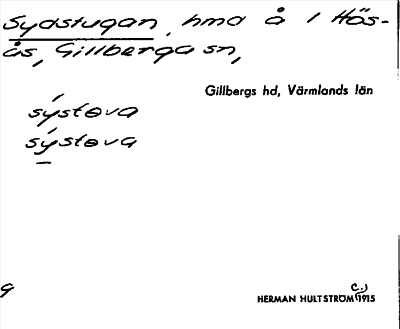 Sydstugan, hmd å 1 Hös-
ås, Gillberga sn,
Gillbergs hd, Värmlands län
sýstɵva
sýstɵva
g
HERMAN HULTSTRÖM (c.) 1915